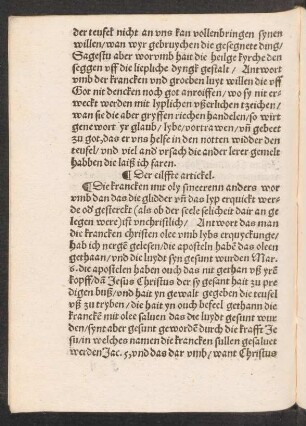 der teufel nicht an vns kan vollenbringen synen
willen/ wan wyr gebruychen die gesegnete ding/
Sagestu aber worvmb hait die heilge kyrche den
seggen vff die liepliche dyngk gestalt/ Antwort
vmb der krancken vnd groeben luyt willen die vff
Got nit dencken noch got anroiffen/ wo sy nit er-
weckt werden mit lyplichen vßerlichen tzeichen/
wan sie die aber gryffen riechen handelen/ so wirt
gene wort yr glaub/ lybe/ vortrawen/ vñ gebeet
zu got, das er vns helfe in den notten widder den
teufel/ vnd viel and vrsach die ander lerer gemelt
habben die laiß ich faren.
¶ Der eilffte artickel.
¶ Die krancken mit oly smerenn anders wor
vmb dan das die glidder vñ das lyp erquickt wer-
de od gesterckt (als ob der seele selicheit dair an ge
legen were) ist vnchristlich/ Antwort das man
die krancken christen olee vmb lybs erquyckunge/
hab ich nergē gelesen/ die aposteln habē das oleen
gethaan/ vnd die luydt syn gesunt wurden Mar.
6. die apostelen haben ouch das nit gerhan vß yrē
kopff/ dañ Jesus Christus der sy gesant hait zu pre
digen buß/ vnd hait yn gewalt gegeben die teufel
vß zu tryben/ die hait yn ouch befeel gethann die
kranckē mit olee saluen das die luydt gesunt wur
den/ synt aber gesunt gewordē durch die krafft Je
su/ in welches namen die krancken sullen gesaluet
werden Jac. 5, vnd das dar vmb/ want Christus